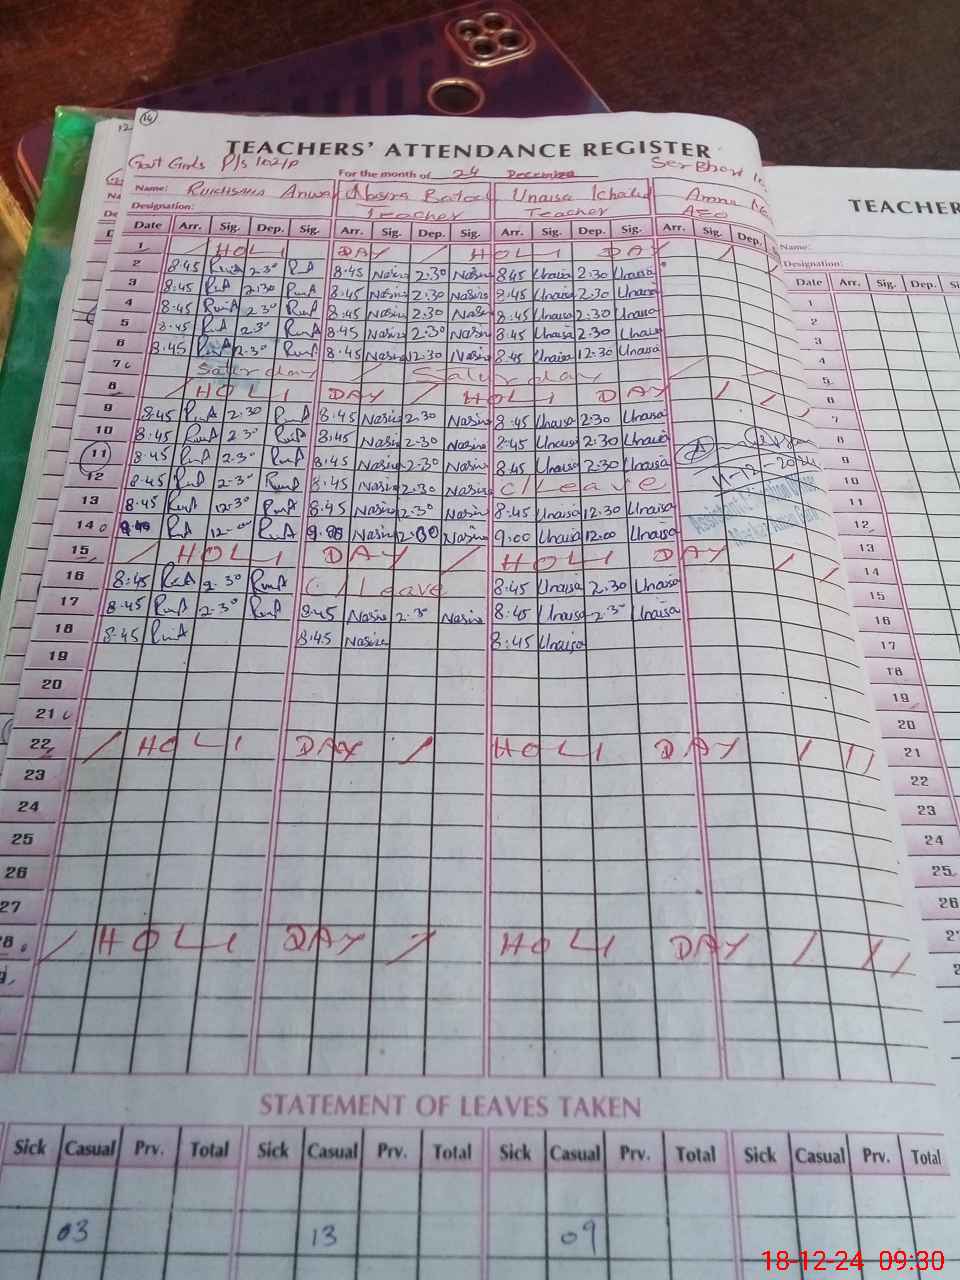 14
TEACHERS' ATTENDANCE REGISTER
Govt Girls P/S 102/P
For the month of 24 December
Name: Rukhsana Anwar Nasira Batool Unaisa
Designation: Teacher Teacher AEO
Date Arr. Sig. Dep. Sig. Arr. Sig. Dep. Sig. Arr. Sig. Dep. Sig. Arr. Sig. Dep.
1 / HOLI DAY / HOLI DAY /
2 8:45 RuA 2:30 RuA 8:45 Nasira 2:30 Nasira 8:45 Unaisa 2:30 Unaisa
3 8:45 RuA 2:30 RuA 8:45 Nasira 2:30 Nasira 8:45 Unaisa 2:30 Unaisa
4 8:45 RuA 2:30 RuA 8:45 Nasira 2:30 Nasira 8:45 Unaisa 2:30 Unaisa
5 8:45 RuA 2:30 RuA 8:45 Nasira 2:30 Nasira 8:45 Unaisa 2:30 Unaisa
6 8:45 RuA 2:30 RuA 8:45 Nasira 2:30 Nasira 8:45 Unaisa 12:30 Unaisa
7 Saturday / Saturday /
8 / HOLI DAY / HOLI DAY / /
9 8:45 RuA 2:30 RuA 8:45 Nasira 2:30 Nasira 8:45 Unaisa 2:30 Unaisa
10 8:45 RuA 2:30 RuA 8:45 Nasira 2:30 Nasira 8:45 Unaisa 2:30 Unaisa
11 8:45 RuA 2:30 RuA 8:45 Nasira 2:30 Nasira 8:45 Unaisa 2:30 Unaisa 11-12-2024
12 8:45 RuA 2:30 RuA 8:45 Nasira 2:30 Nasira C/Leave
13 8:45 RuA 12:30 RuA 8:45 Nasira 2:30 Nasira 8:45 Unaisa 12:30 Unaisa
14 RuA 12:00 RuA 9:00 Nasira 12:00 Nasira 9:00 Unaisa 12:00 Unaisa
15 / HOLI DAY / HOLI DAY / /
16 8:45 RuA 2:30 RuA C/Leave 8:45 Unaisa 2:30 Unaisa
17 8:45 RuA 2:30 RuA 8:45 Nasira 2:30 Nasira 8:45 Unaisa 2:30 Unaisa
18 8:45 RuA 8:45 Nasira 8:45 Unaisa
19
20
21
22 / HOLI DAY / HOLI DAY / / /
23
24
25
26
27
28 / HOLI DAY / HOLI DAY / / /
STATEMENT OF LEAVES TAKEN
Sick Casual Prv. Total Sick Casual Prv. Total Sick Casual Prv. Total Sick Casual Prv. Total
03 13 09
TEACHER
Name:
Designation:
Date Arr. Sig. Dep.
1
2
3
4
5
6
7
8
9
10
11
12
13
14
15
16
17
18
19
20
21
22
23
24
25
26
18-12-24 09:30